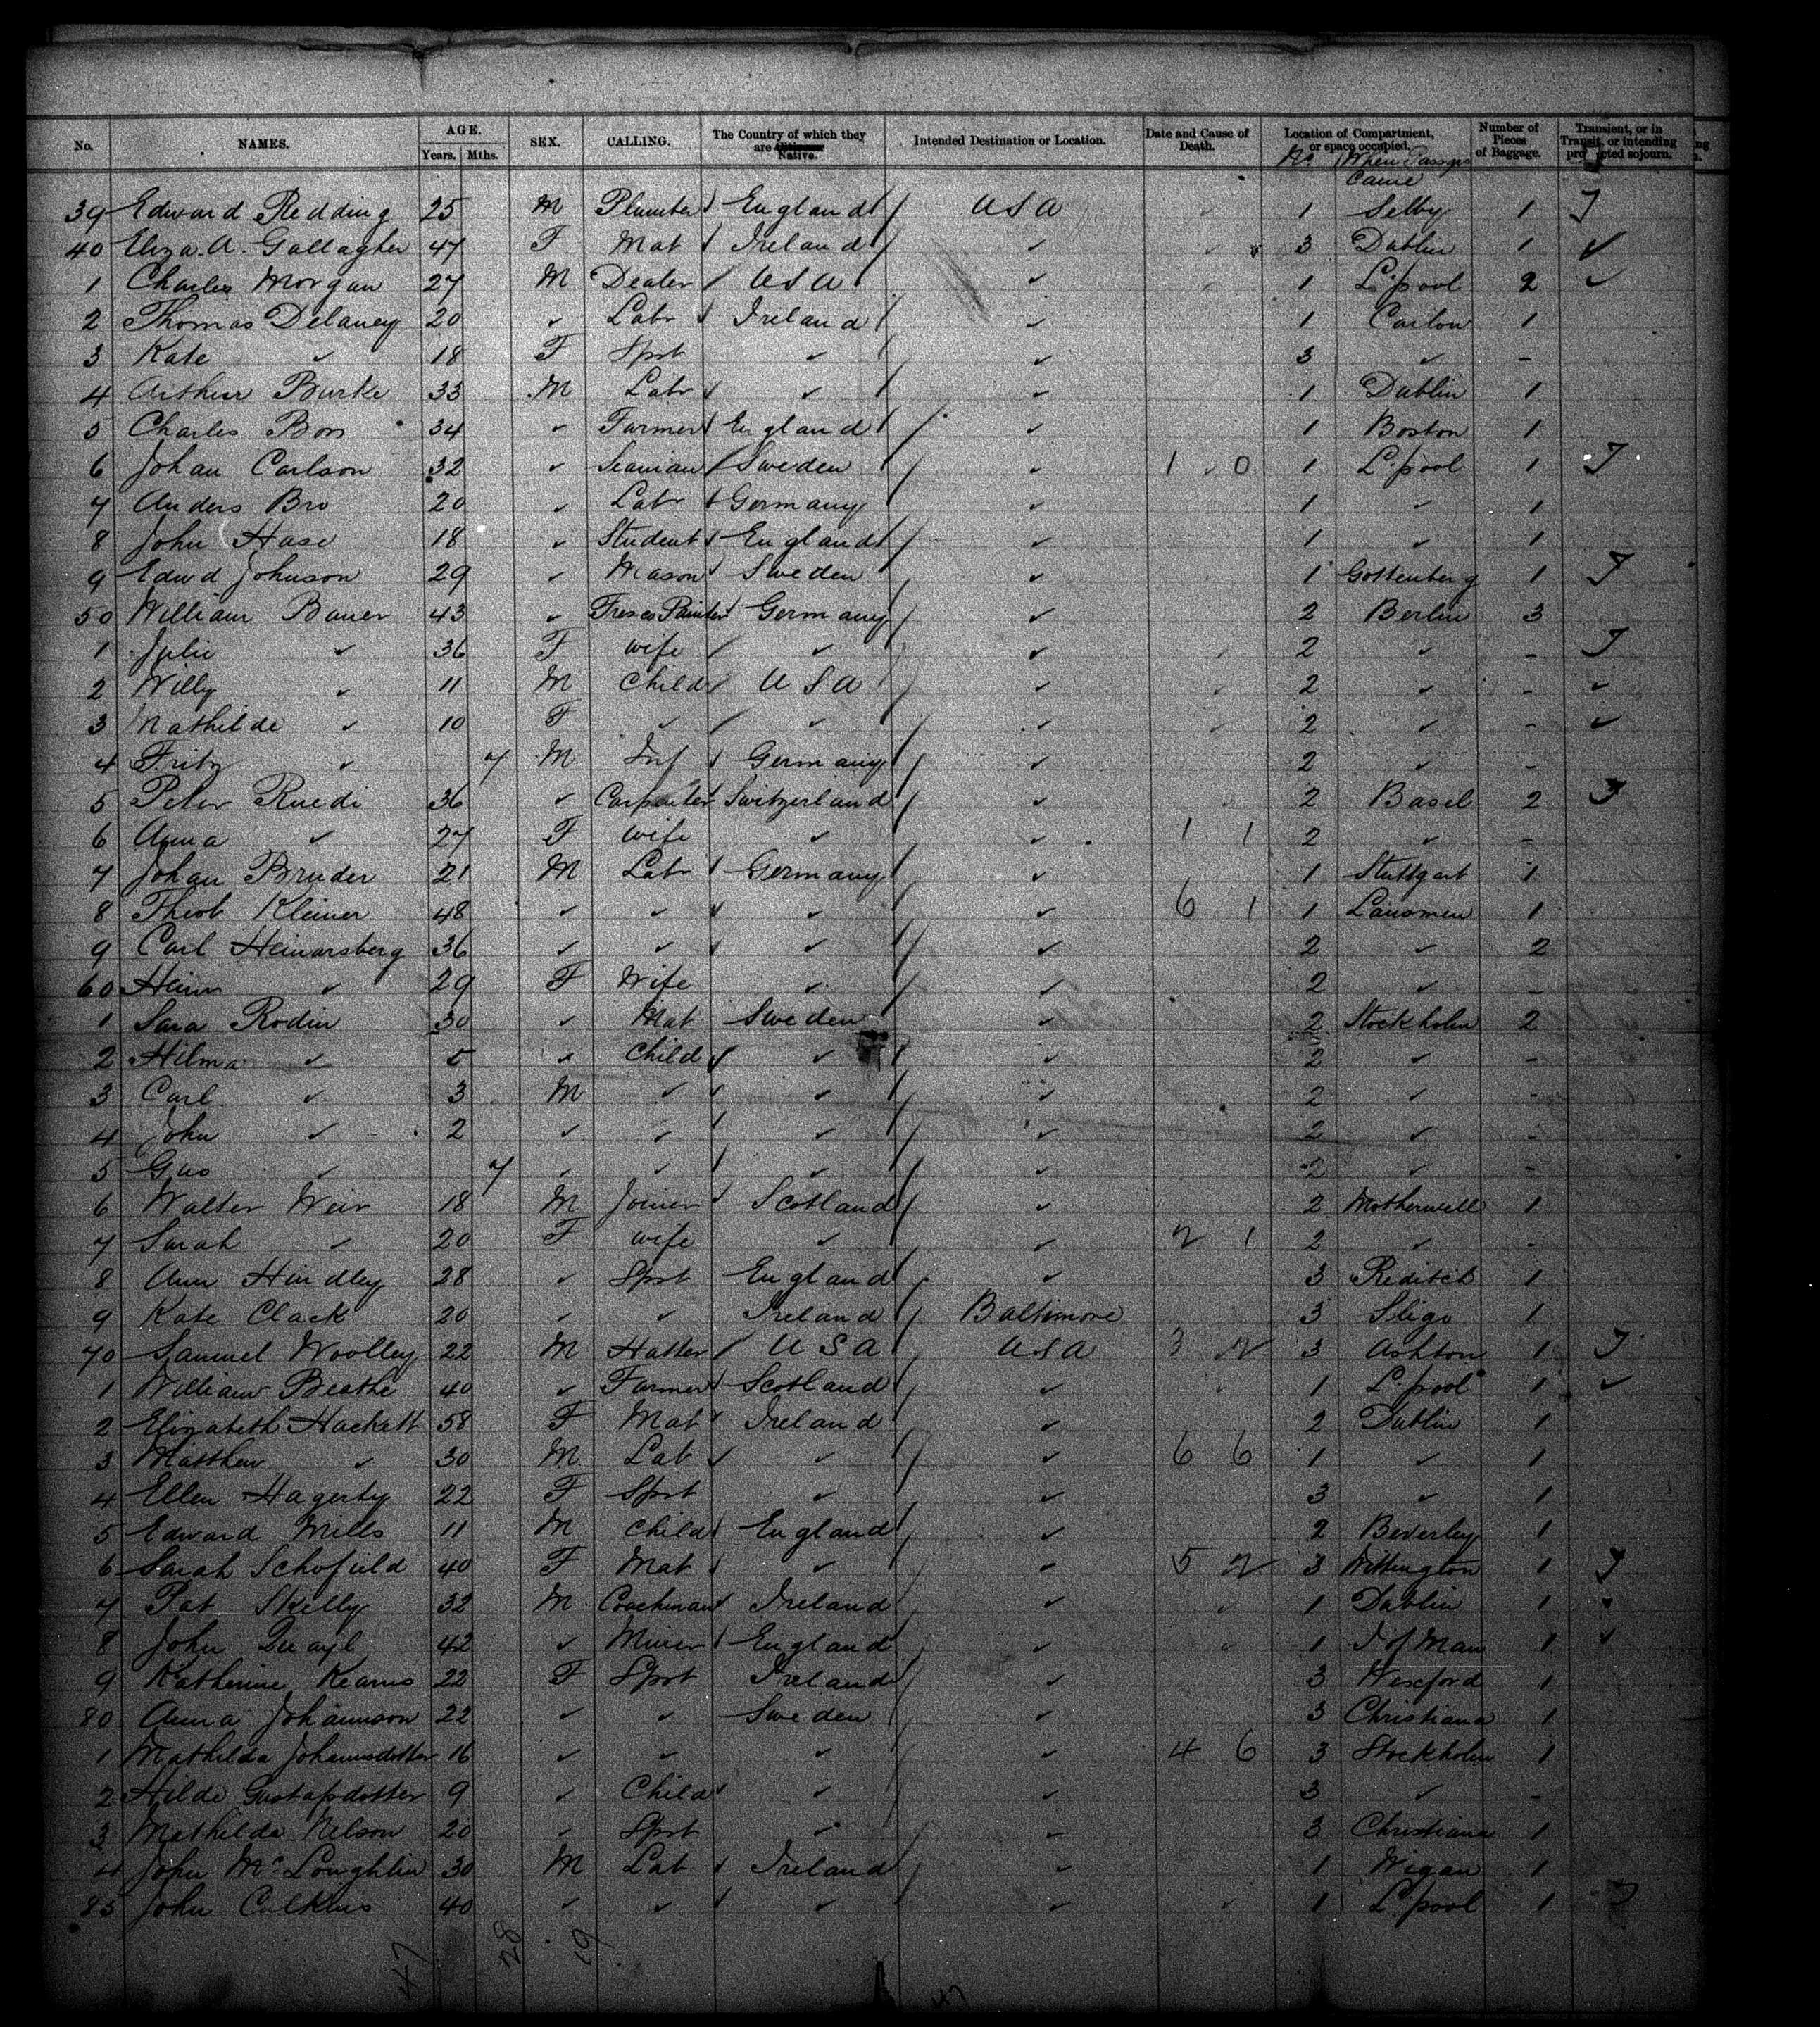 No. NAMES. AGE. Years. Mths. SEX. CALLING. The Country of which they are Citizens Native. Intended Destination or Location. Date and Cause of Death. Location of Compartment, or space occupied. Number of Pieces of Baggage. Transient, or in Transit, or intending protracted sojourn.
No. When Passgrs Came
39 Edward Redding 25 M Plumber England USA 1 Selby 1 T
40 Eliza. A. Gallagher 47 F Mat Ireland ✓ 3 Dublin 1 ✓
1 Charles Morgan 27 M Dealer USA ✓ 1 L'pool 2 ✓
2 Thomas Delaney 20 ✓ Labr Ireland ✓ 1 Carlow 1
3 Kate ✓ 18 F Spst ✓ ✓ 3 ✓ -
4 Arthur Burke 33 M Labr ✓ ✓ 1 Dublin 1
5 Charles Bon 34 ✓ Farmer England ✓ 1 Boston 1
6 Johan Carlson 32 ✓ Seaman Sweden ✓ 1 0 1 L'pool 1 T
7 Anders Bro 20 ✓ Labr Germany 1 ✓ 1
8 John Hase 18 ✓ Student England ✓ 1 ✓ 1
9 Edwd Johnson 29 ✓ Mason Sweden ✓ 1 Gottenberg 1 T
50 William Bauer 43 ✓ Fresco Painter Germany ✓ 2 Berlin 3
1 Julie ✓ 36 F wife ✓ ✓ 2 ✓ - T
2 Willy ✓ 11 M Child USA ✓ 2 ✓ - ✓
3 Mathilde ✓ 10 F ✓ ✓ ✓ 2 ✓ - ✓
4 Fritz ✓ 7 M Inf Germany ✓ 2 ✓ -
5 Peter Ruedi 36 ✓ Carpenter Switzerland ✓ 2 Basel 2 T
6 Anna ✓ 27 F wife ✓ ✓ 1 1 2 ✓ -
7 Johan Bruder 21 M Labr Germany ✓ 1 Stuttgart 1
8 Theob Kleiner 48 ✓ ✓ ✓ ✓ 6 1 1 1
9 Carl Heinarsberg 36 ✓ ✓ ✓ ✓ 2 ✓ 2
60 ✓ 29 F Wife ✓ ✓ 2 ✓ -
1 Sara Rodin 30 ✓ Mat Sweden ✓ 2 Stockholm 2
2 Hilma ✓ 5 ✓ Child ✓ ✓ 2 ✓ -
3 Carl ✓ 3 M ✓ ✓ ✓ 2 ✓ -
4 John ✓ 2 ✓ ✓ ✓ ✓ 2 ✓ -
5 Gus ✓ 7 ✓ ✓ ✓ ✓ 2 ✓ -
6 Walter Weir 18 M Joiner Scotland ✓ 2 Motherwell 1
7 Sarah ✓ 20 F wife ✓ ✓ 2 1 2 ✓ -
8 Ann Hindley 28 ✓ Spst England ✓ 3 Reditch 1
9 Kate Clack 20 ✓ ✓ Ireland Baltimore 3 Sligo 1
70 Samuel Woolley 22 M Hatter USA USA 3 2 3 Ashton 1 T
1 William Beathe 40 ✓ Farmer Scotland ✓ 1 L'pool 1 ✓
2 Elizabeth Hackett 58 F Mat Ireland ✓ 2 Dublin 1
3 Matthew ✓ 30 M Lab ✓ ✓ 6 6 1 ✓ 1
4 Ellen Hagerty 22 F Spst ✓ ✓ 3 ✓ 1
5 Edward Mills 11 M Child England ✓ 2 Beverley 1
6 Sarah Schofield 40 F Mat ✓ ✓ 5 2 3 Withington 1 T
7 Pat Skelly 32 M Coachman Ireland ✓ 1 Dublin 1
8 John Quayl 42 ✓ Miner England ✓ 1 I of Man 1 ✓
9 Katherine Kearns 22 F Spst Ireland ✓ 3 Wexford 1
80 Anna Johannson 22 ✓ ✓ Sweden ✓ 3 Christiana 1
1 Mathilda Johannsdotter 16 ✓ ✓ ✓ ✓ 4 6 3 Stockholm 1
2 Hilde Gustafsdotter 9 ✓ Child ✓ ✓ 3 ✓ -
3 Mathilda Nelson 20 ✓ Spst ✓ ✓ 3 Christiana 1
4 John McLoughlin 30 M Lab Ireland ✓ 1 Wigan 1
85 John Culkins 40 ✓ ✓ ✓ ✓ 1 L'pool 1 T
47 28 19 47